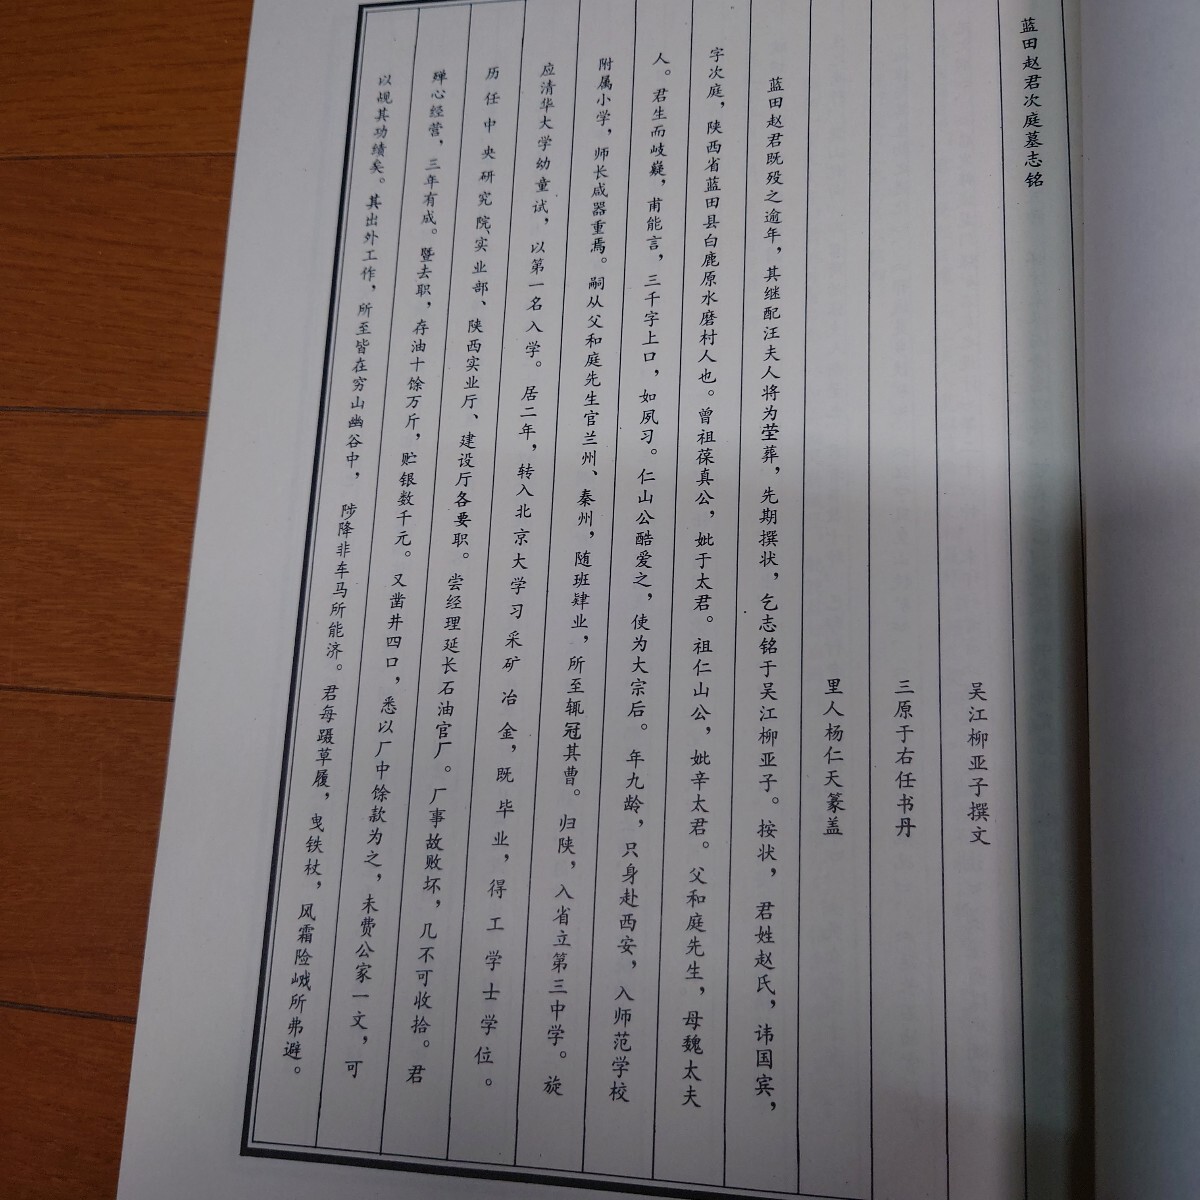 蓝田赵君次庭墓志铭
吴江柳亚子撰文
三原于右任书丹
里人杨仁天篆盖
蓝田赵君既殁之逾年，其继配汪夫人将为茔葬，先期撰状，乞志铭于吴江柳亚子。按状，君姓赵氏，讳国宾，
字次庭，陕西省蓝田县白鹿原水磨村人也。曾祖葆真公，妣于太君。祖仁山公，妣辛太君。父和庭先生，母魏太夫
人。君生而岐嶷，甫能言，三千字上口，如夙习。仁山公酷爱之，使为大宗后。年九龄，只身赴西安，入师范学校
附属小学，师长咸器重焉。嗣从父和庭先生官兰州、秦州，随班肄业，所至辄冠其曹。归陕，入省立第三中学。旋
应清华大学幼童试，以第一名入学。居二年，转入北京大学习采矿冶金，既毕业，得工学士学位。
历任中央研究院、实业部、陕西实业厅、建设厅各要职。尝经理延长石油官厂。厂事故败坏，几不可收拾。君
殚心经营，三年有成。暨去职，存油十馀万斤，贮银数千元。又凿井四口，悉以厂中馀款为之，未费公家一文，可
以觇其功绩矣。其出外工作，所至皆在穷山幽谷中，陟降非车马所能济。君每蹑草履，曳铁杖，风霜险巇所弗避。